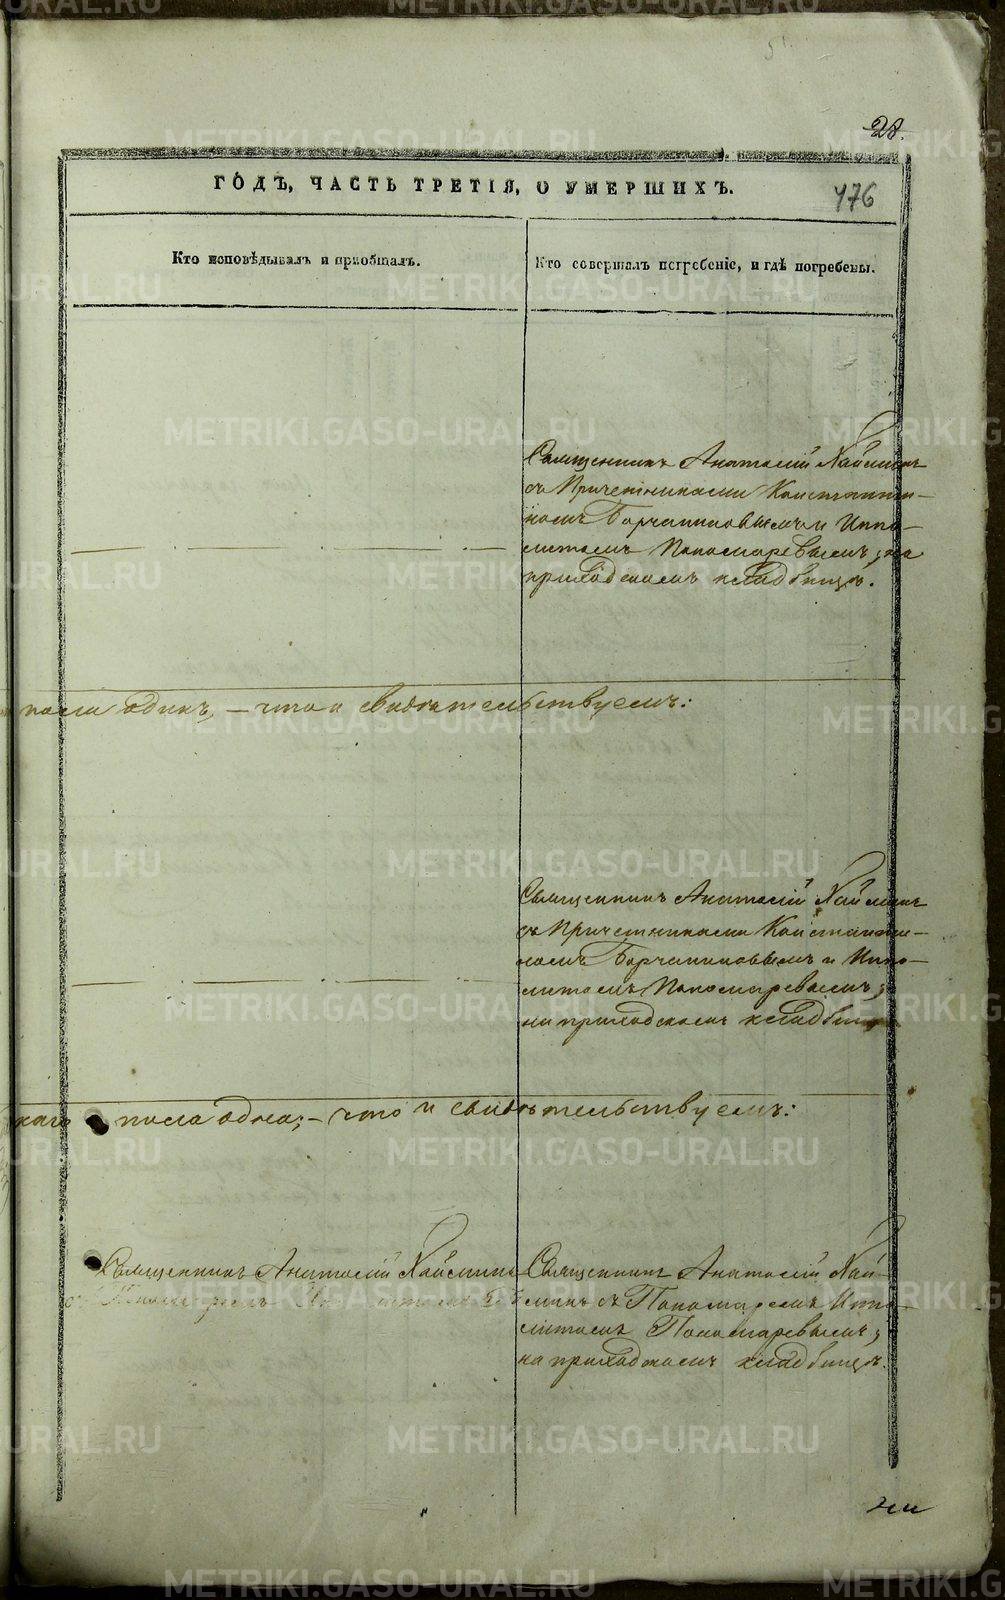 28.
ГОДЪ, ЧАСТЬ ТРЕТІЯ, О УМЕРШИХЪ.
476
Кто исповѣдывалъ и пріобщалъ.
Кто совершалъ погребеніе, и гдѣ погребены.
Священникъ Анатолій Хаймин
съ Причетниками Константи-
номъ Борчаниновымъ и Иппо-
литомъ Пономаревымъ; на
приходскомъ кладбищѣ.
пола одинъ, – что и свидѣтельствуемъ:
Священникъ Анатолій Хаймин
съ Причетниками Константи-
номъ Борчаниновымъ и Иппо-
литомъ Пономаревымъ;
на приходскомъ кладбищ
каго пола одна; – что и свидѣтельствуемъ:
Священникъ Анатолій Хаймин
съ Пономаремъ
Священникъ Анатолій Хай-
минъ съ Пономаремъ Иппо-
литомъ Пономаревымъ;
на приходскомъ кладбищѣ.
METRIKI.GASO-URAL.RU